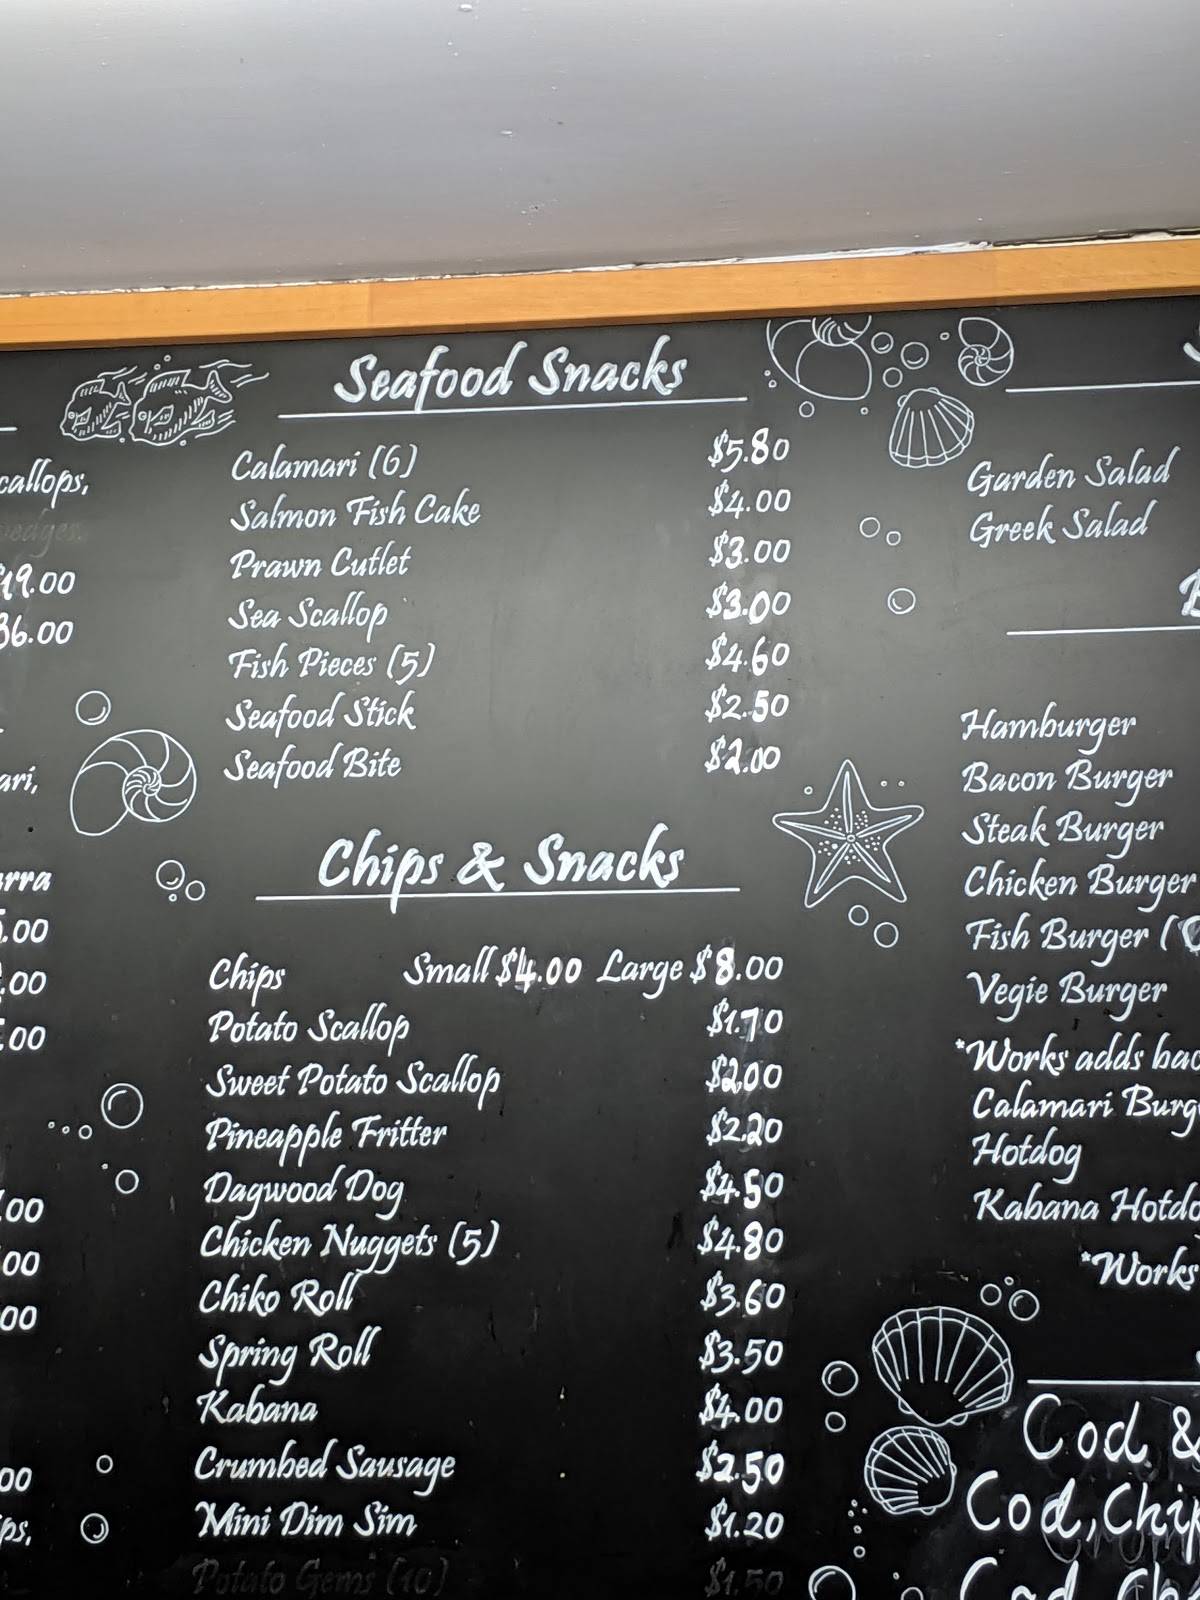 callops,
wedges.
$19.00
36.00
ari,
arra
.00
.00
.00
.00
.00
.00
00
ps,
Seafood Snacks
Calamari (6) $5.80
Salmon Fish Cake $4.00
Prawn Cutlet $3.00
Sea Scallop $3.00
Fish Pieces (5) $4.60
Seafood Stick $2.50
Seafood Bite $2.00
Chips & Snacks
Chips Small $4.00 Large $8.00
Potato Scallop $1.70
Sweet Potato Scallop $2.00
Pineapple Fritter $2.20
Dagwood Dog $4.50
Chicken Nuggets (5) $4.80
Chiko Roll $3.60
Spring Roll $3.50
Kabana $4.00
Crumbed Sausage $2.50
Mini Dim Sim $1.20
Potato Gems (10) $1.50
Garden Salad
Greek Salad
Hamburger
Bacon Burger
Steak Burger
Chicken Burger
Fish Burger (
Vegie Burger
*Works adds bac
Calamari Burg
Hotdog
Kabana Hotdo
*Works
Cod &
Cod, Chip